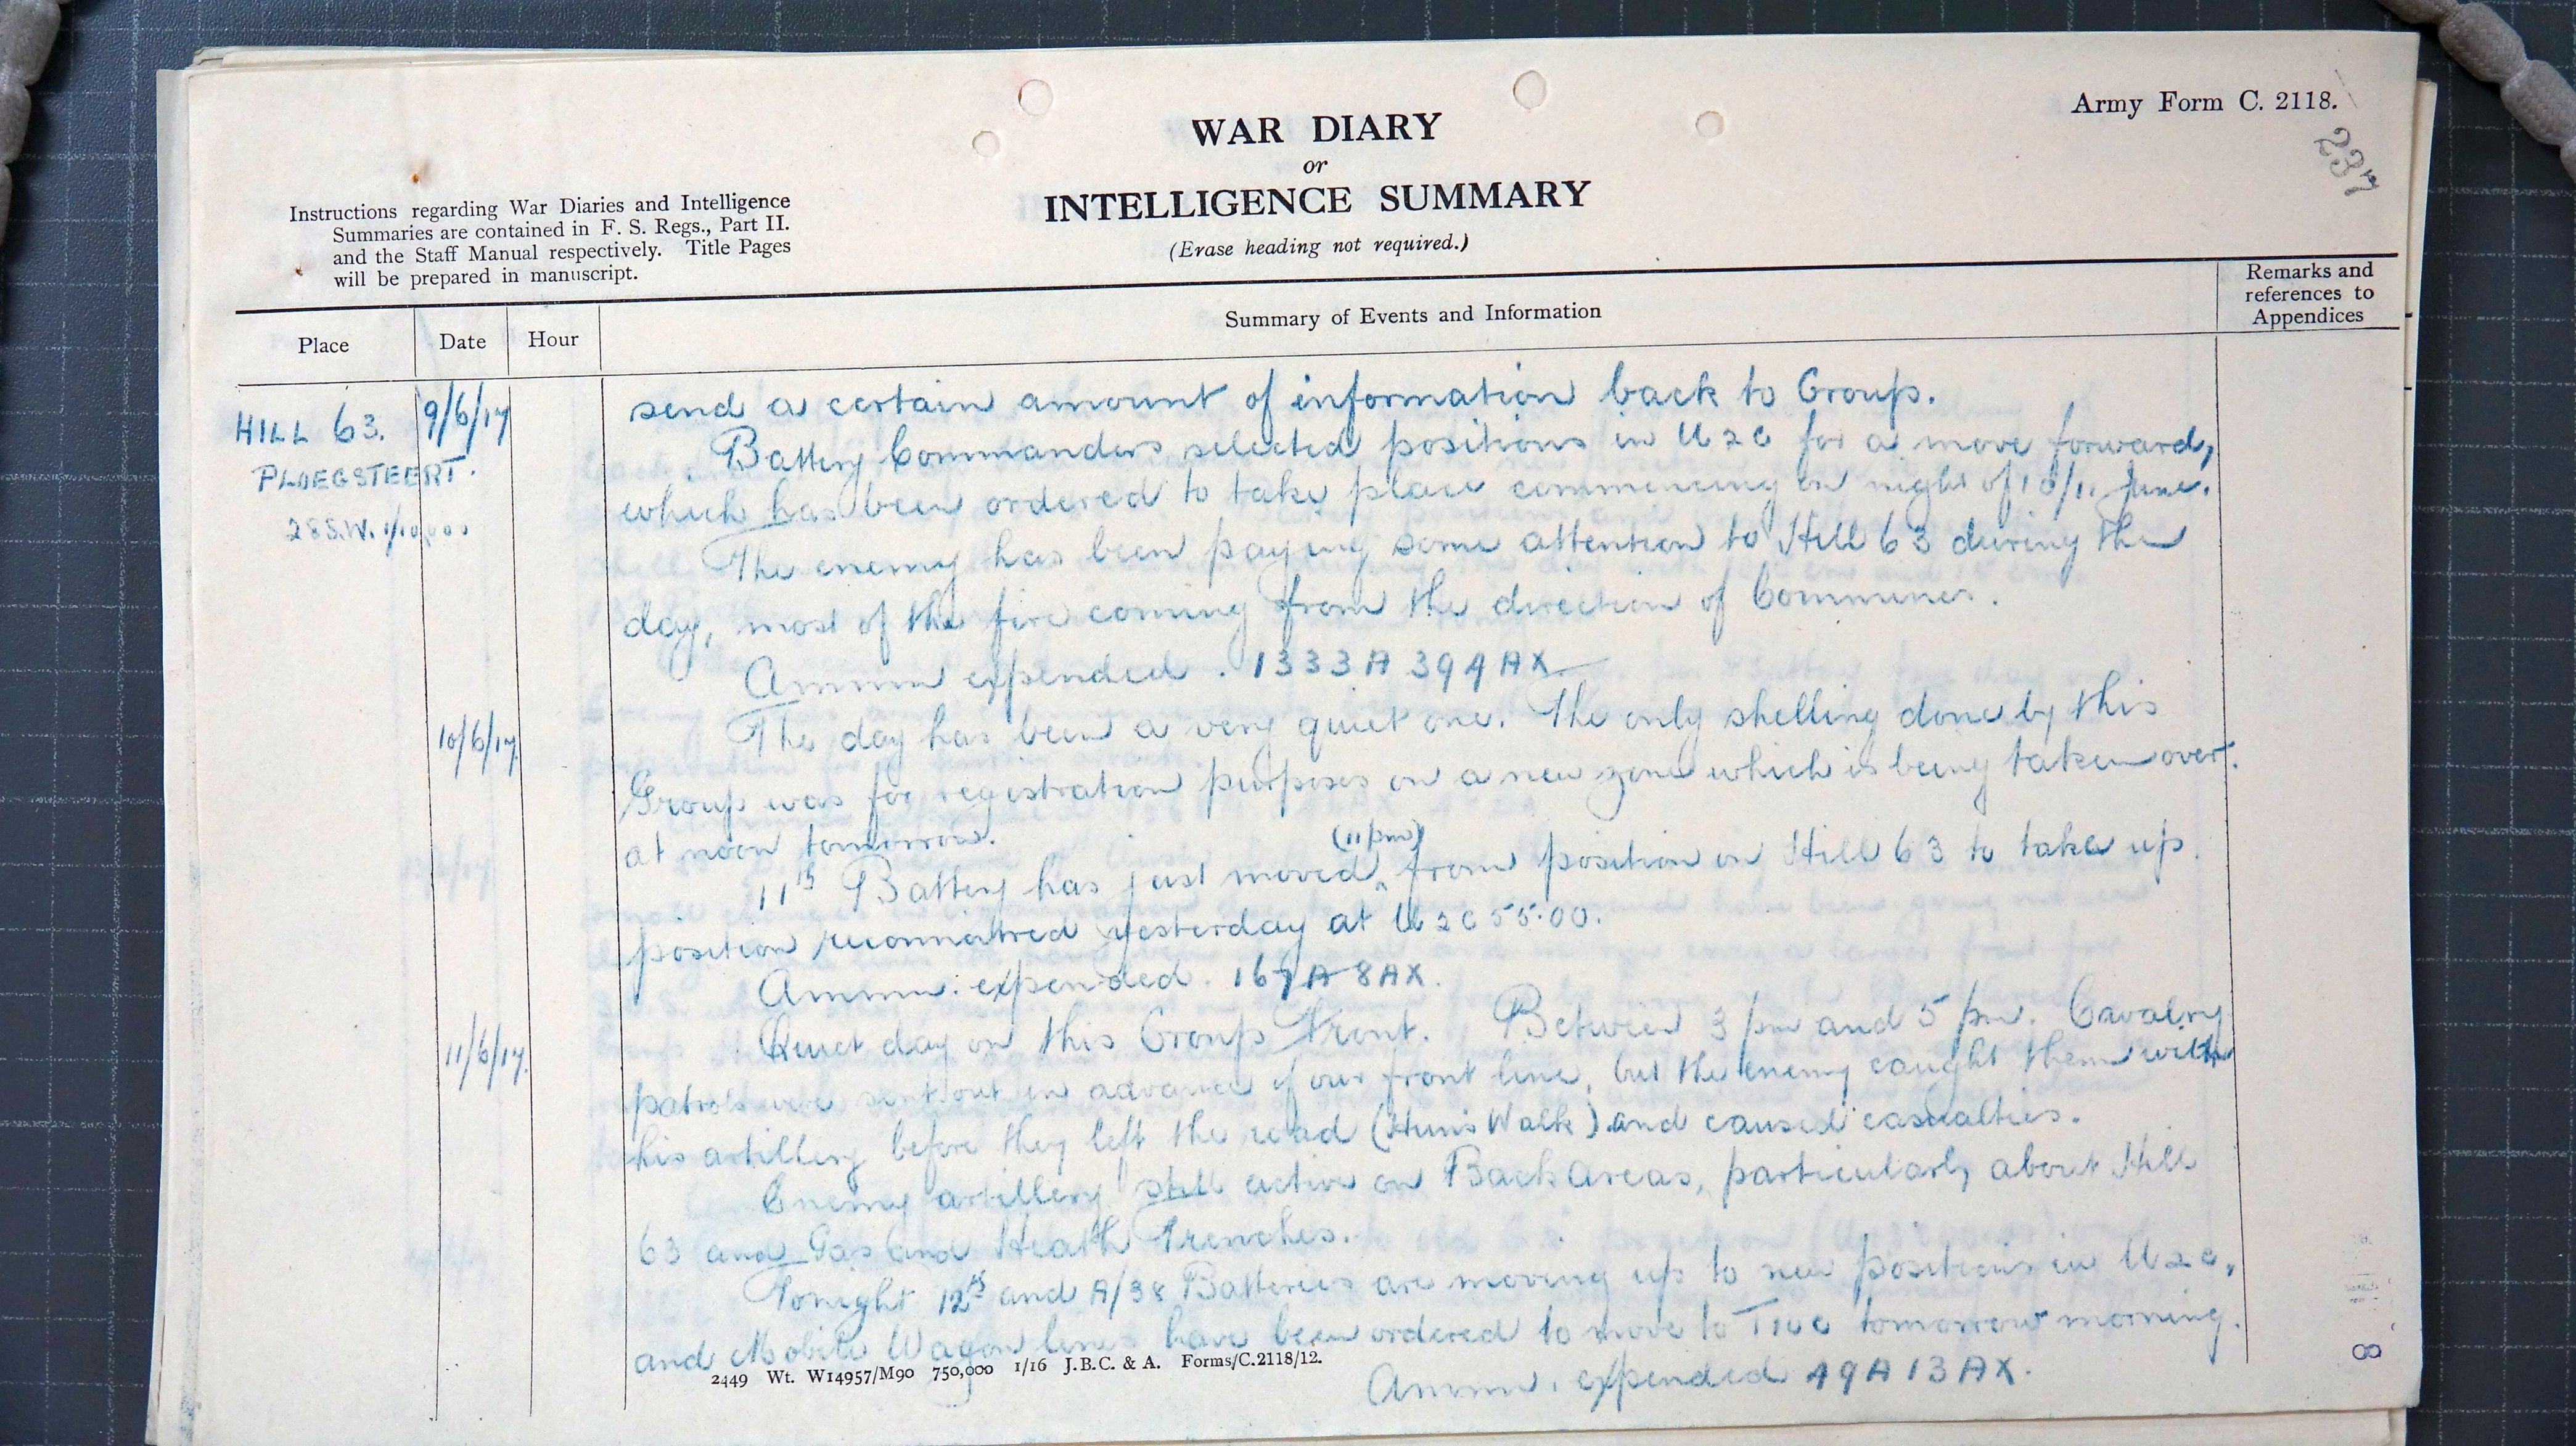 Army Form C. 2118.
237
WAR DIARY
or
INTELLIGENCE SUMMARY
(Erase heading not required.)
Instructions regarding War Diaries and Intelligence
Summaries are contained in F. S. Regs., Part II.
and the Staff Manual respectively. Title Pages
will be prepared in manuscript.
Place
Date
Hour
Summary of Events and Information
Remarks and
references to
Appendices
HILL 63.
PLOEGSTEERT.
28S.W. 1/10,000
9/6/17
send a certain amount of information back to Group.
Battery Commanders selected positions in U2c for a move forward,
which has been ordered to take place commencing on night of 10/11 June.
The enemy has been paying some attention to Hill 63 during the
day, most of the fire coming from the direction of Commines.
Ammn expended. 1333A 394AX
10/6/17.
The day has been a very quiet one. The only shelling done by this
Group was for registration purposes on a new zone which is being taken over
at noon tomorrow.
11th Battery has just moved (11pm) from position on Hill 63 to take up
position reconnoitred yesterday at U2c55.00.
Ammn. expended. 167A 8AX.
11/6/17.
Quiet day on this Group Front. Between 3 pm and 5 pm. Cavalry
patrols were sent out in advance of our front line, but the enemy caught them with
his artillery before they left the road (Hun's Walk) and caused casualties.
Enemy artillery still active on Back Areas, particularly about Hill
63 and Gas and Heath Trenches.
Tonight 12th and A/38 Batteries are moving up to new positions in U2c,
and Mobile Wagon lines have been ordered to move to tomorrow morning.
Ammn. expended 49A 13AX.
2449 Wt. W14957/M90 750,000 1/16 J.B.C. & A. Forms/C.2118/12.
8